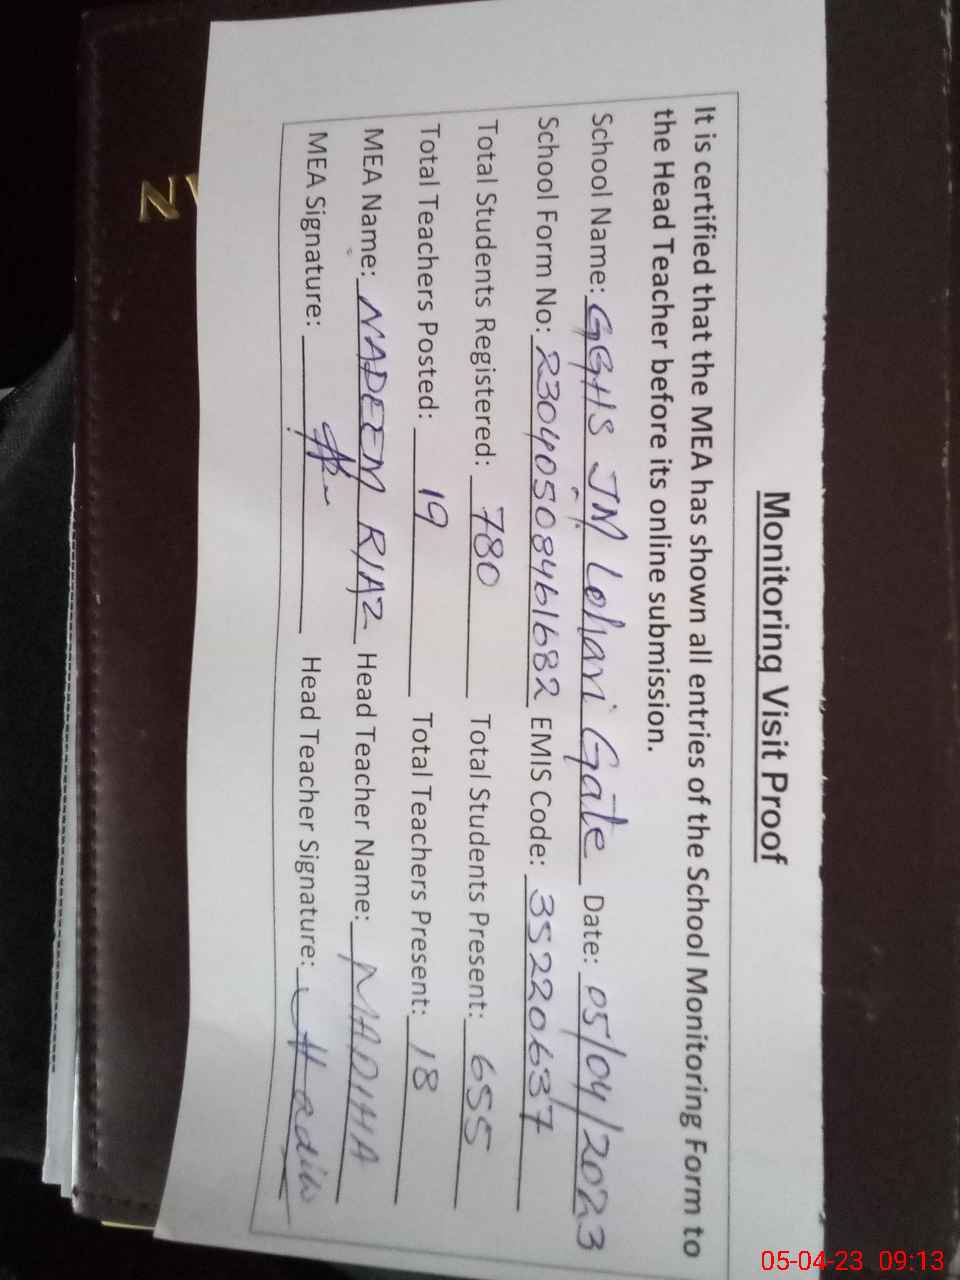 Monitoring Visit Proof
It is certified that the MEA has shown all entries of the School Monitoring Form to
the Head Teacher before its online submission.
School Name: GGHS JM Lohari Gate Date: 05/04/2023
School Form No: 23040508461682 EMIS Code: 35220637
Total Students Registered: 780 Total Students Present: 655
Total Teachers Posted: 19 Total Teachers Present: 18
MEA Name: NADEEM RIAZ Head Teacher Name: MADIHA
MEA Signature: Head Teacher Signature:
N
05-04-23 09:13